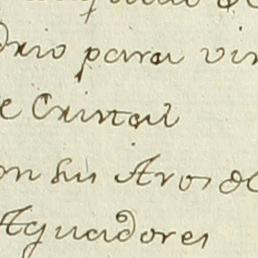 drio para vin
e Cristal
on sus Aros de
Aguadores